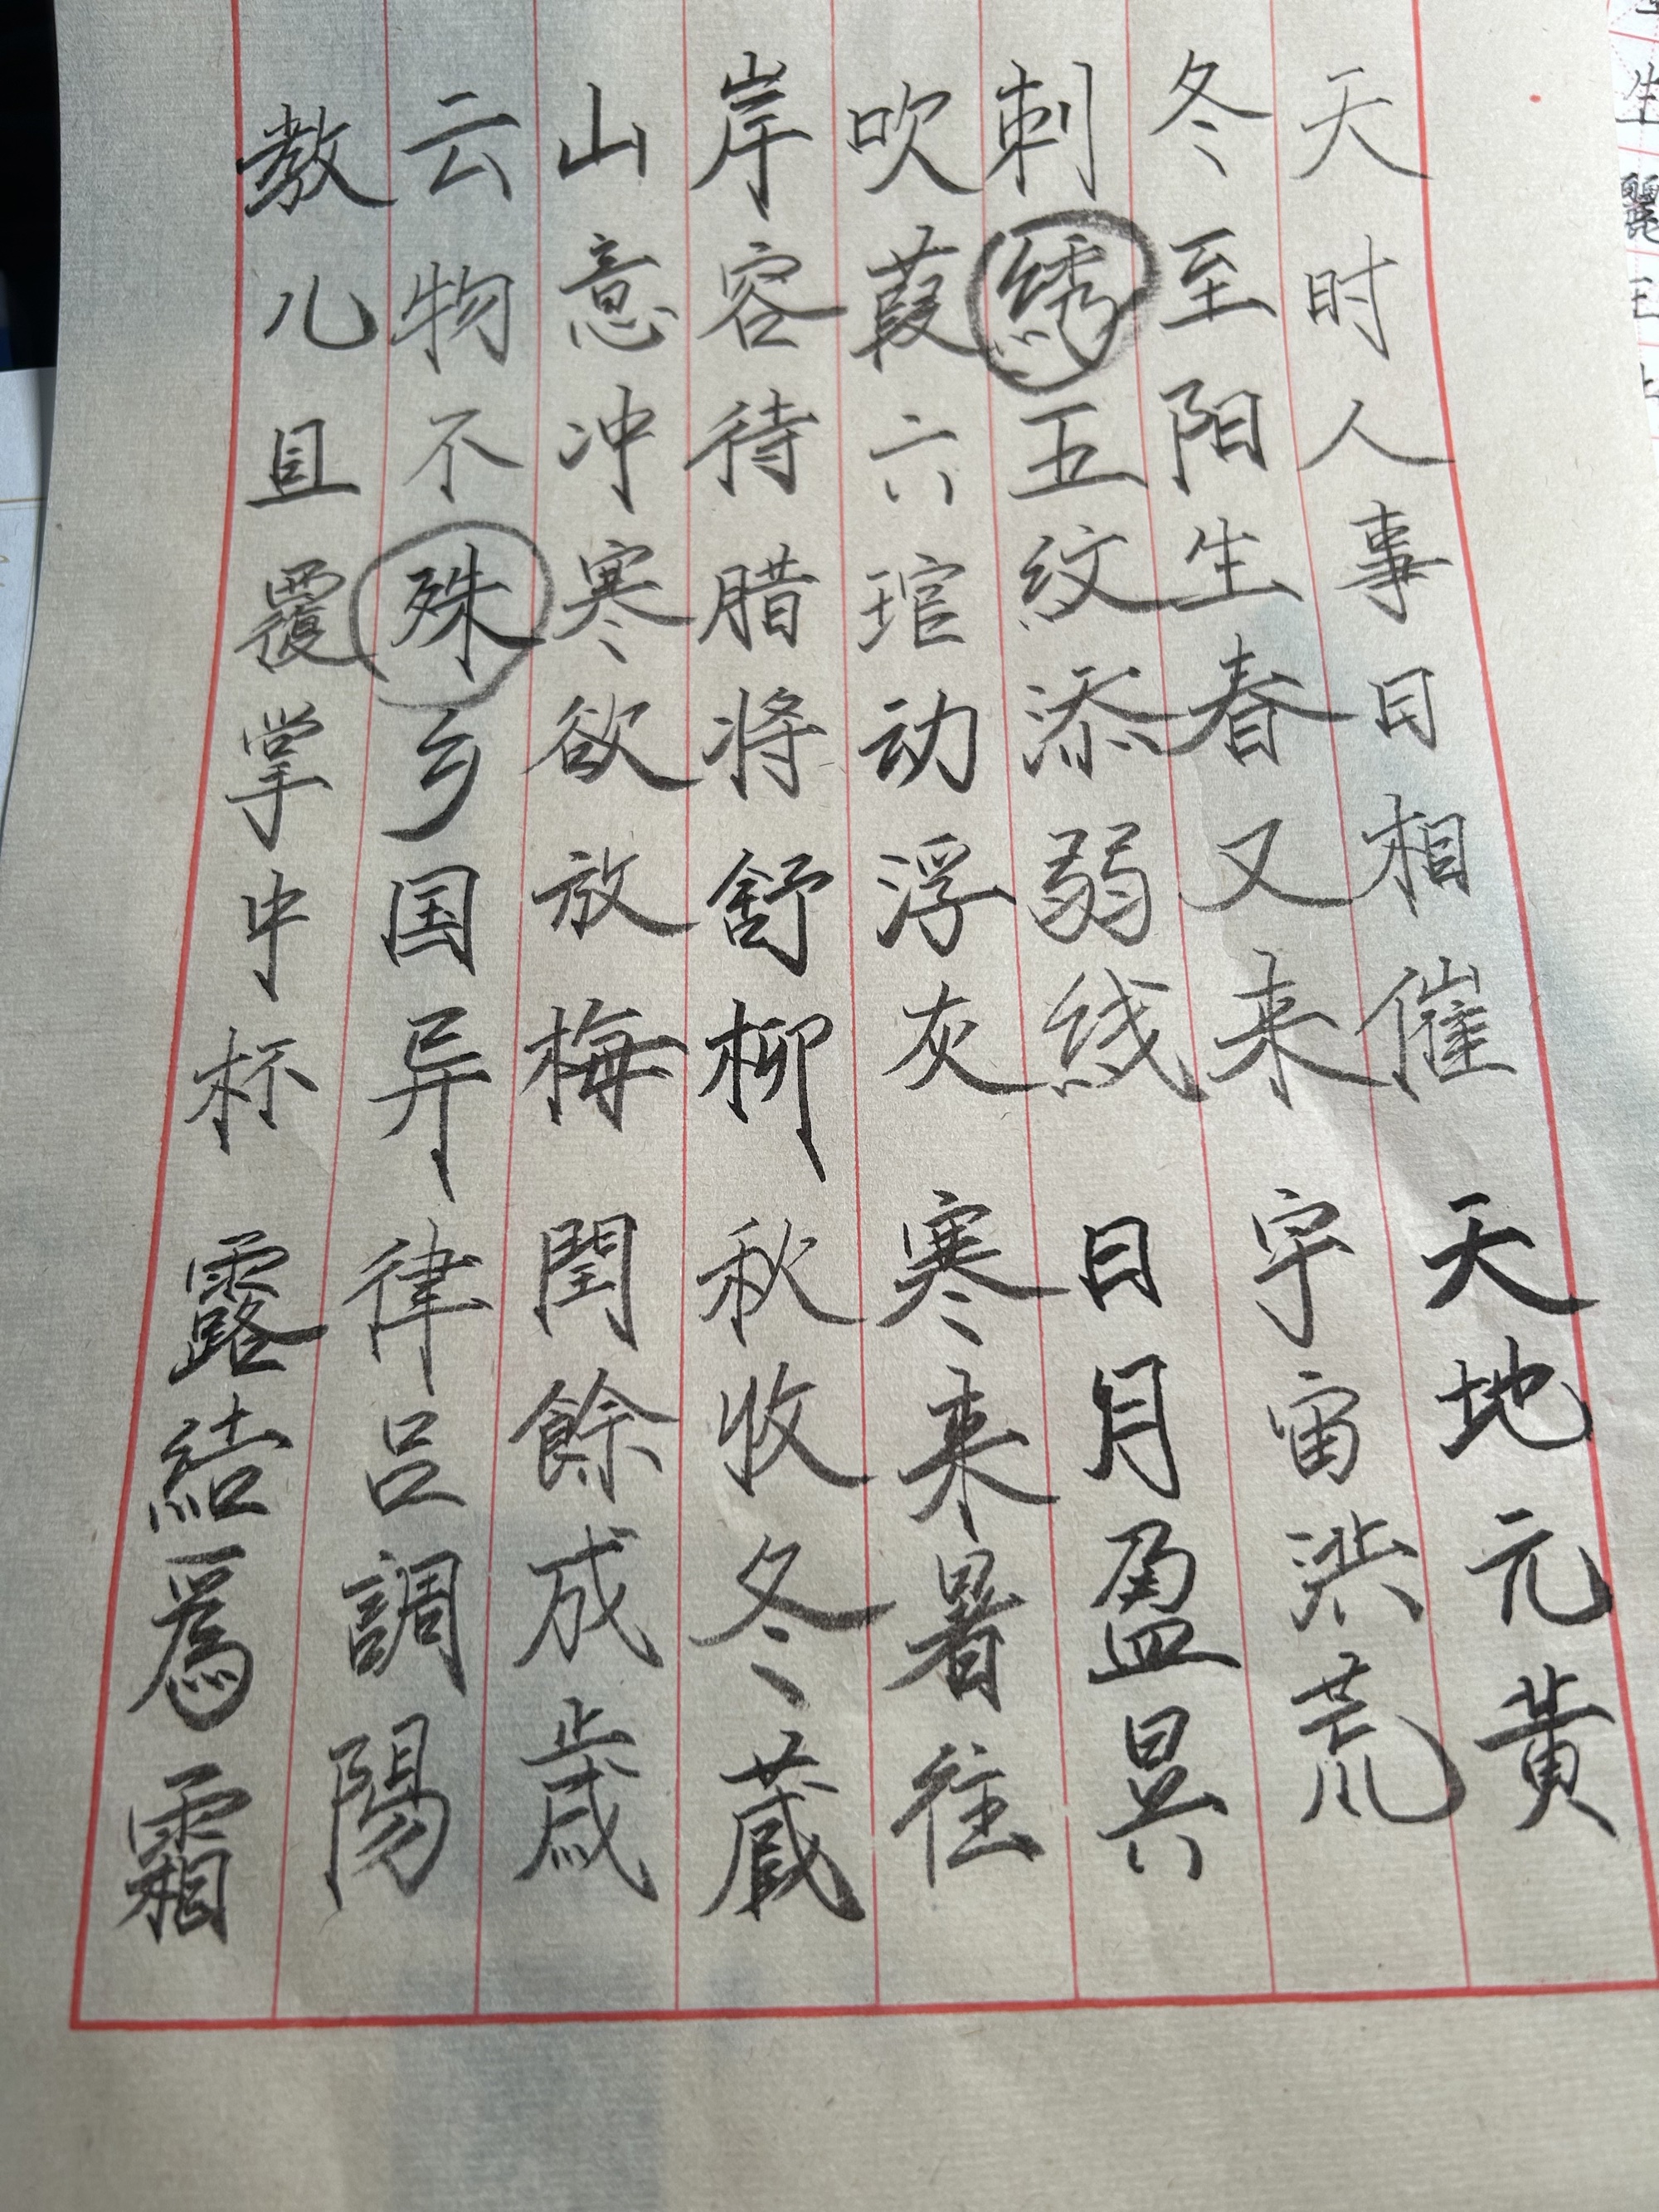 天时人事日相催 天地元黄
冬至阳生春又来 宇宙洪荒
刺绣五纹添弱线 日月盈昃
吹葭六琯动浮灰 寒来暑往
岸容待腊将舒柳 秋收冬藏
山意冲寒欲放梅 閏餘成歲
云物不殊乡国异 律吕調陽
教儿且覆掌中杯 露結爲霜
生
麗